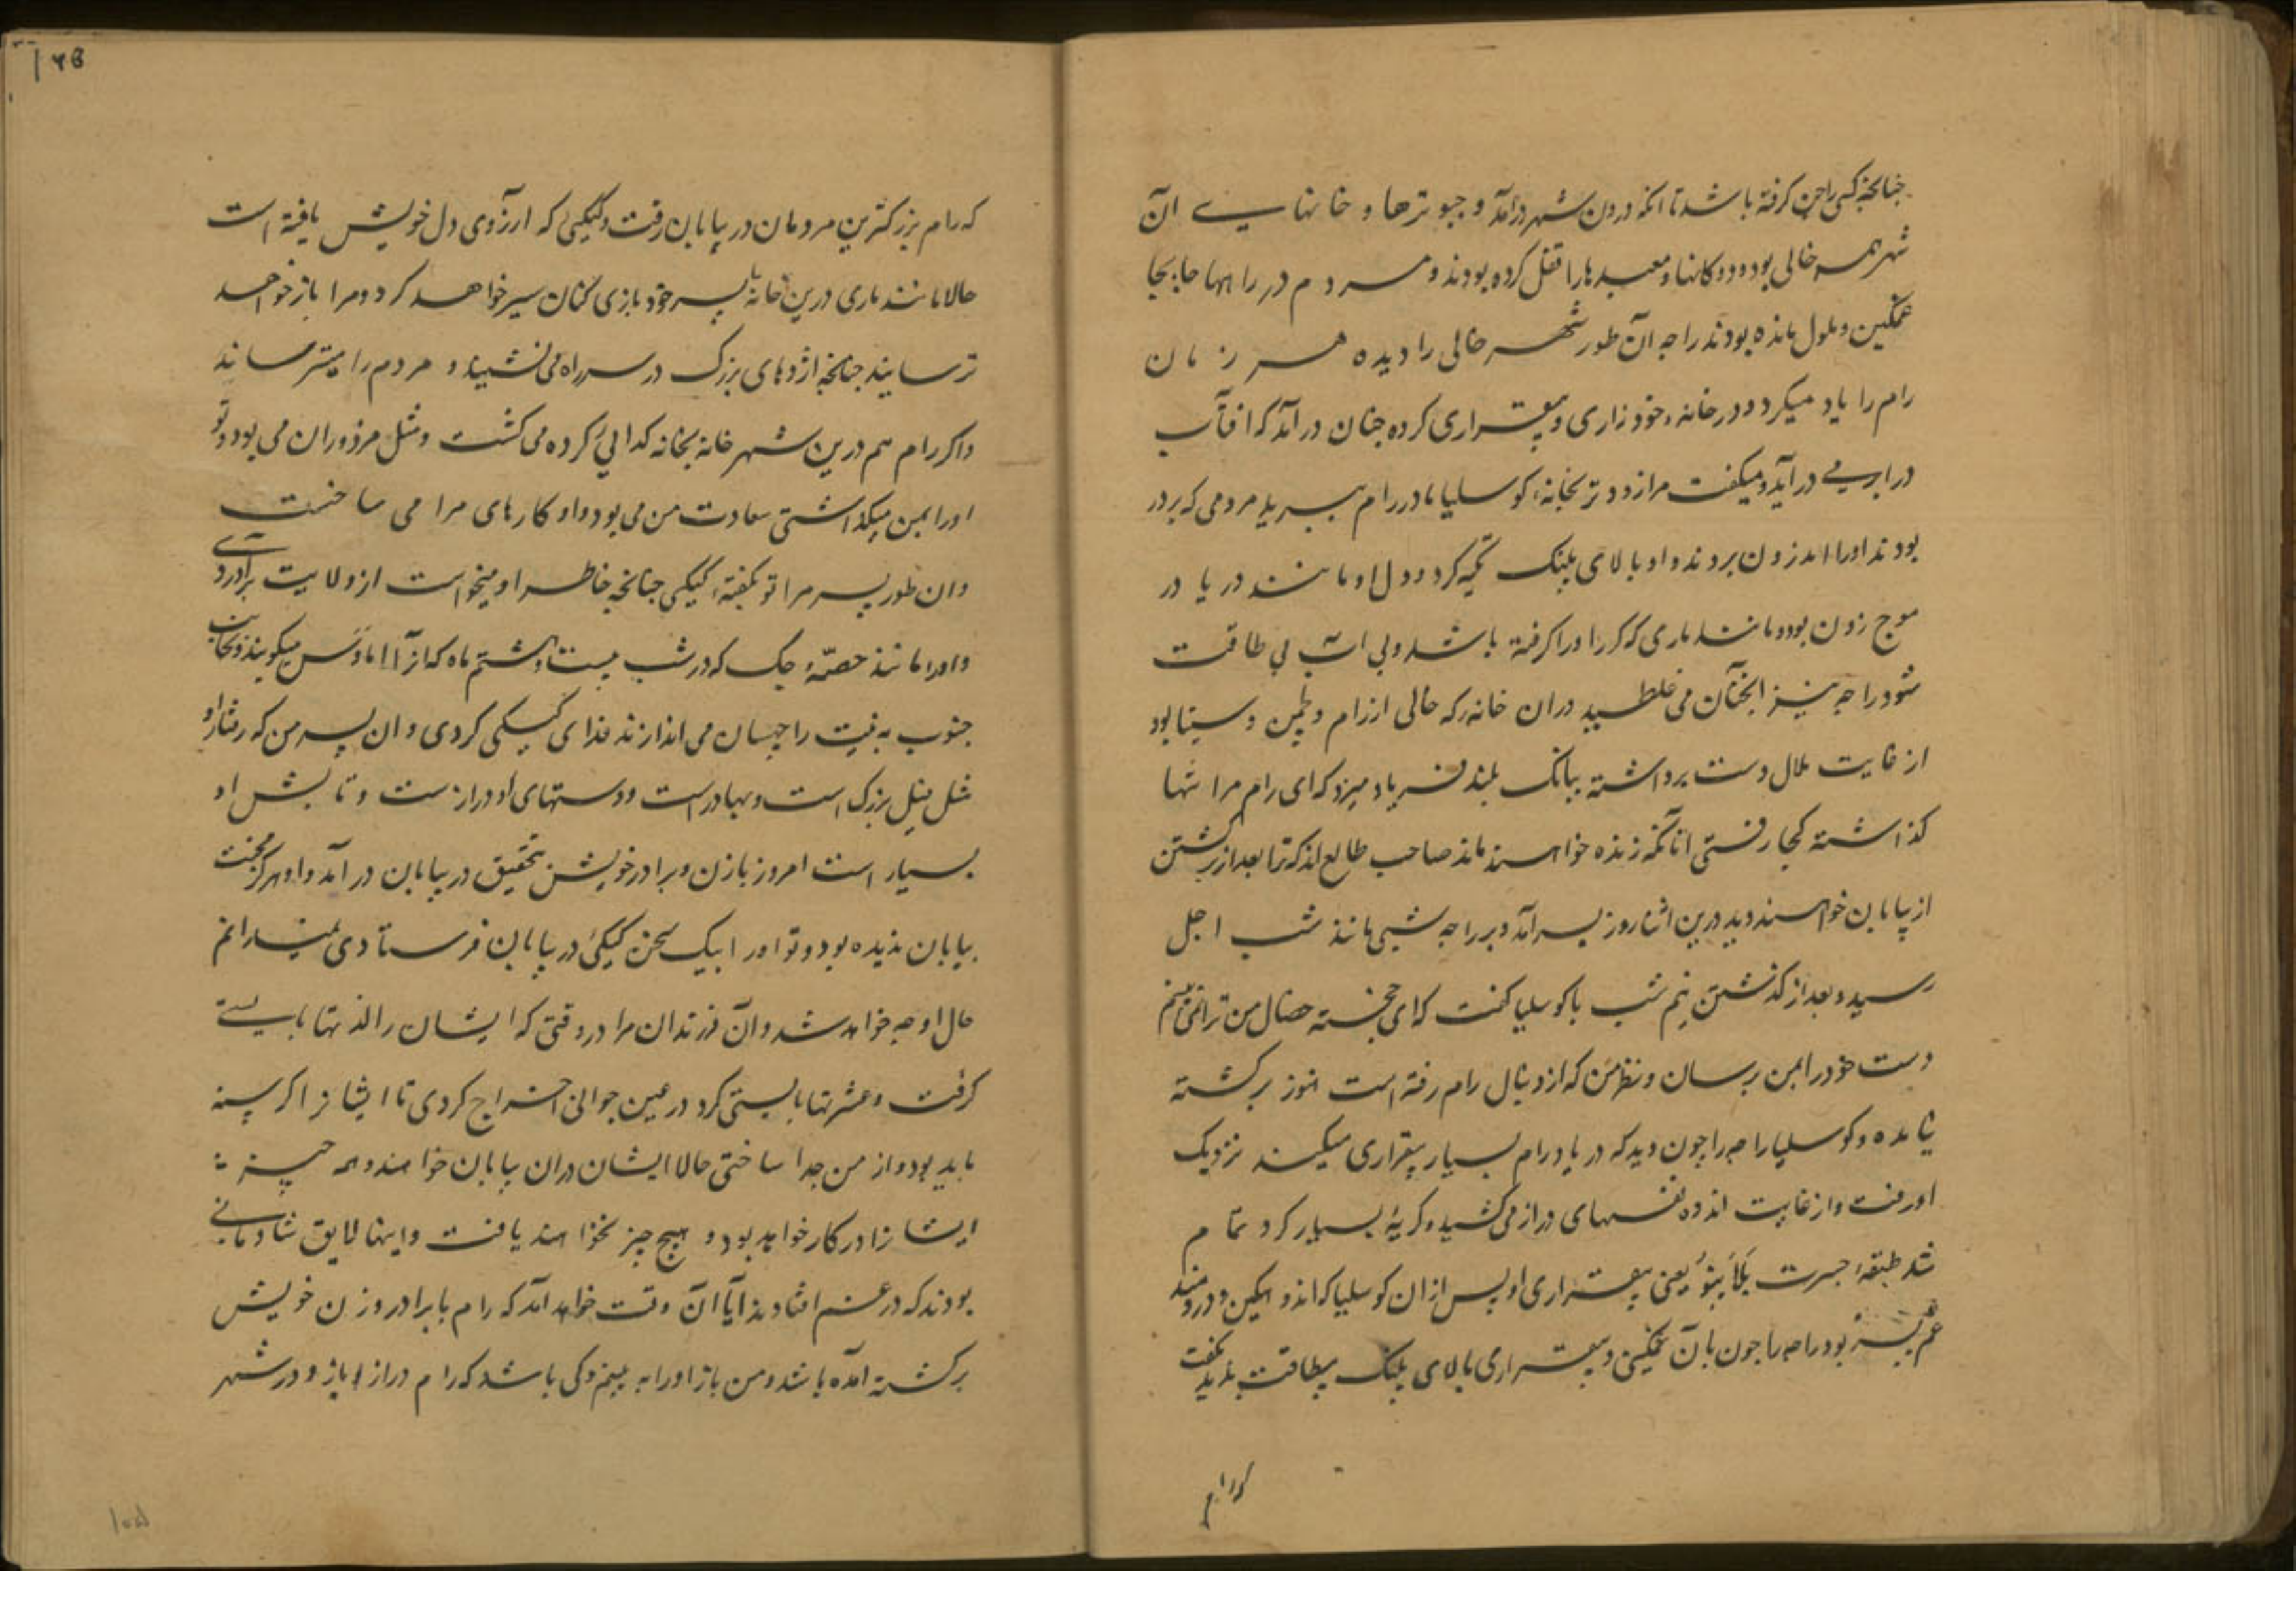 چنانچه کسی را جن گرفته باشد تا آنکه درون شهر درآمد و چبوترها و خانهای آن
شهر همه خالی بود و دوکانها و معبدها را قفل کرده بودند و مردم در راهها جابجا
غمگین و ملول مانده بودند راجه آن طور شهر خالی را دیده هر زمان
رام را یاد میکرد و در خانهٔ خود زاری و بیقراری کرده چنان درآمد که افتاب
در ابر می درآید و میگفت مرا زودتر بخانهٔ کوسلیا مادر رام ببرید مردمی که بر در
بودند او را اندرون بردند و او بالای پلنگ تکیه کرد و دل او مانند دریا در
موج زدن بود و مانند ماری که کرر او را گرفته باشد و بی آب بی طاقت
شود راجه نیز انچنان می غلطید دران خانه که خالی از رام و لچمن و سیتا بود
از غایت ملال دست برداشته ببانگ بلند فریاد میزد که ای رام مرا تنها
گذاشته کجا رفتی آنانکه زنده خواهند ماند صاحب طالع اند که ترا بعد از برگشتن
از بیابان خواهند دید درین اثنا روز بسر آمد و بر راجه شبی مانند شب اجل
رسید و بعد از گذشتن نیم شب با کوسلیا گفت که ای خجسته خصال من ترا نمی بینم
دست خود را بمن برسان و نظر من که از دنبال رام رفته است هنوز برگشته
نیامده و کوسلیا راجه را چون دید که در یاد رام بسیار بیقراری میکند نزدیک
او رفت و از غایت اندوه نفسهای دراز می کشید و گریهٔ بسیار کرد تمام
شد طبقهٔ جسرت بلاپنو یعنی بیقراری او پس ازان کوسلیا که اندوهگین و دردمند
غم پسر بود راجه را چون بآن غمگینی و بیقراری بالای پلنگ بیطاقت بدید گفت
که رام
که رام بزرگترین مردمان در بیابان رفت و کیکئی که ارزوی دل خویش یافته است
حالا مانند ماری درین خانه با پسر خود بازی کنان سیر خواهد کرد و مرا باز خواهد
ترسانید چنانچه اژدهای بزرگ در سر راه می نشیند و مردم را میترساند
و اکر رام هم درین شهر خانه بخانه کدایی کرده می کشت و مثل مزدوران می بود و تو
او را بمن میگذاشتی سعادت من می بود و او کارهای مرا می ساخت
و ان طور پسر مرا تو بگفتهٔ کیکی چنانچه خاطر او میخواست از ولایت برآوردی
و او را مانند حصهٔ جک که در شب بیست و هشتم ماه که آنرا اماوس میگویند و بجانب
جنوب به نیت راچهسان می اندازند فدای کیکی کردی و ان پسر من که رفتار او
مثل فیل بزرگ است و بهادر است و دستهای او دراز ست و تابش او
بسیار است امروز با زن و برادر خویش بتحقیق در بیابان درآمد و او هرگز محنت
بیابان ندیده بود و تو او را بیک سخن کیکئی در بیابان فرستادی نمیدانم
حال او چه خواهد شد و آن فرزندان مرا در وقتی که ایشان را لذتها بایستی
گرفت و عشرتها بایستی کرد در عین جوانی اخراج کردی تا ایشانرا گرسنه
باید بود و از من جدا ساختی حالا ایشان دران بیابان خواهند و همه چیز
ایشانرا در کار خواهد بود و هیچ چیز نخواهند یافت و اینها لایق شادمانی
بودند که در غم افتادند آیا آن وقت خواهد آمد که رام با برادر و زن خویش
برگشته آمده باشد و من باز او را به بینم و کی باشد که رام دراز بازو در شهر